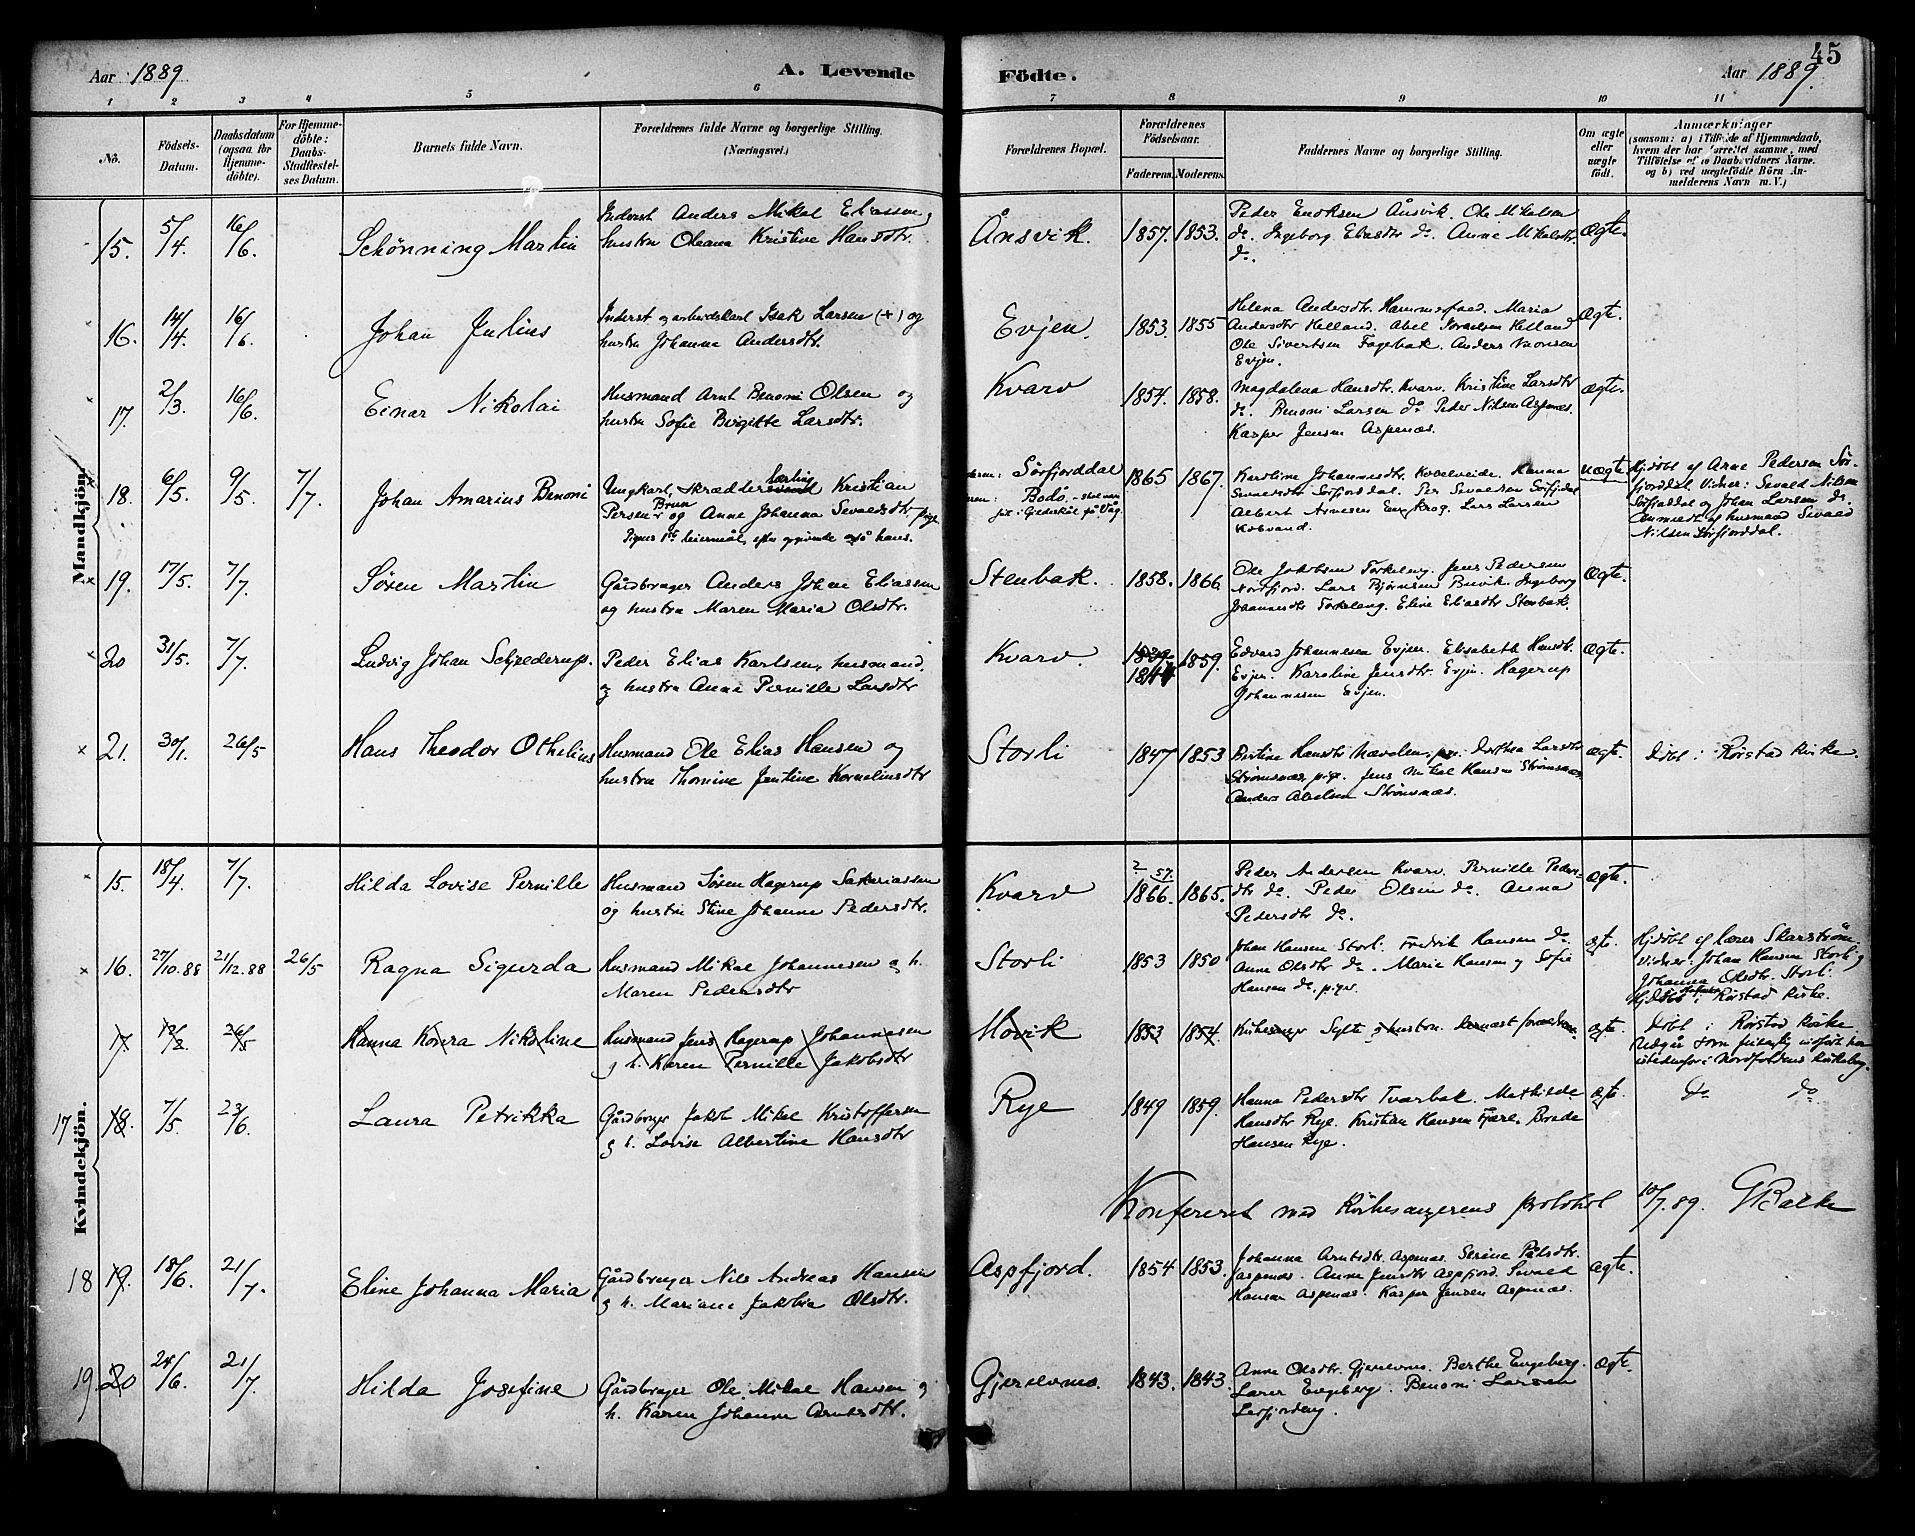 45
Aar 1889 A. Levende Födte. Aar 1889.
1 2 3 4 5 6 7 8 9 10 11
Nö.
Födsels-Datum.
Daabsdatum (ogsaa for Hjemme-döbte).
For Hjemme-döbte: Daabs-Stadfæstel-ses Datum.
Barnets fulde Navn.
Forældrenes fulde Navne og borgerlige Stilling. (Næringsvei.)
Forældrenes Bopæl.
Forældrenes Födselsaar.
Faderens. Moderens.
Faddernes Navne og borgerlige Stilling.
Om ægte eller uægte födt.
Anmærkninger
(saasom: a) i Tilfælde af Hjemmedaab, hvem der har forrettet samme, med Tilföielse af to Daabsvidners Navne. og b) ved uægtefödte Börn An-melderens Navn m. V.)
Mandkjön.
15. 5/4. 16/6. Schönning Martin
Inderst Anders Mikal Eliassen og
hustru Oleana Kristine Hansdtr.
Ånsvik. 1857. 1853.
Peder Enoksen Ånsvik. Ole Mikalsen
do. Ingeborg Eliasdtr do. Anne Mikalsdtr.
do.
Ægte.
16. 14/4. 16/6. Johan Julius
Inderst og arbeidskarl Isak Larsen (+) og
hustru Johanna Andersdtr.
Evjen. 1853. 1855
Helena Andersdtr. Maria
Andersdtr Helland. Abel Helland
Ole Sivertsen Fagerbak. Anders
Evjen.
Ægte.
17. 2/3. 16/6. Einar Nikolai
Husmand Arnt Benoni Olsen og
hustru Sofie Birgitte Larsdtr.
Kvarv 1854. 1858.
Magdalena Hansdtr. Kvarv. Kristine Larsdtr
do. Benoni Larsen do. Peder Nilsen Aspenæs.
Kasper Jensen Aspenæs.
ægte.
18. 6/5. 9/5. 7/7. Johan Amarius Benoni
Ungkarl, skrædderlærling Kristian
Persen Brun og Anne Johanna Sevaldsdtr, pige
Pigens 1ste leiermål, efter opgivende også hans.
Sørfjorddal
Bodø.
1865 1867.
Karoline Johannesdtr. Kobelveide. Hanna
Sevaldsdtr Sørfjorddal. Per Sevaldsen Sørfj.dal
Albert Arnesen Engkrog. Lars Larsen
Kobvand.
uægte
Hjdøbt af Arne Pedersen Sør-
fjorddal Vidner: Sevald Nilsen
Sørfjorddal og Johan Larsen do.
Anmeldt af husmand Sevald
Nilsen Sørfjorddal.
19. 17/5. 7/7. Søren Martin
Gårdbruger Anders Johan Eliassen
og hustru Maren Maria Olsdtr.
Stenbak. 1858. 1866
Ole Jakobsen Torkeleng. Jens Pedersen
Nordfjord. Lars Bjørnsen Buvik. Ingeborg
Johannesdtr Torkeleng. Eline Eliasdtr Stenbak.
Ægte.
20 31/5. 7/7. Ludvig Johan Schjelderup.
Peder Elias Karlsen, husmand,
og hustru Anne Pernille Larsdtr
Kvarv. 1839. 1844 1859.
Edvard Johannesen Evjen. Elisabeth Hansdtr.
Evjen. Karoline Jensdtr. Evjen. Hagerup
Johannesen Evjen.
Ægte.
21. 30/1. 26/5 Hans Theodor Othelius
Husmand Ole Elias Hansen og
hustru Thomine Jentine Kornelius­dtr
Storli 1847 1853
Hansdtr Dorthea Larsdtr
Strømsnæs, pige. Jens Mikal Hansen Strømsnæs
Anders Abelsen Strømsnæs.
ægte.
Døbt i Rørstad kirke.
Kvindekjön.
15. 18/4. 7/7. Hilda Lovise Pernille
Husmand Søren Hagerup Sakariassen
og hustru Stine Johanne Pedersdtr.
Kvarv 57. 1866. 1865.
Peder Andersen Kvarv. Pernille Peders-
dtr do. Peder Olsen do. Anna
Pedersdtr do.
ægte.
16. 27/10.88 21/12.88 26/5 Ragna Sigurda
Husmand Mikal Johannesen og h.
Maren Pedersdtr
Storli 1853 1850
Johan Hansen Storli. Fredrik Hansen do.
Anne Olsdtr do. Marie Hansen og Sofie
Hansen do, piger.
ægte.
Hjdøbt af lærer Skarstrøm.
Vidner: Johan Hansen Storli og
Johanna Olsdtr. Storli.
i Rørstad kirke.
17 26/5 Hanna Konra Nikoline
Husmand Jens Hagerup Johannesen
og h. Karen Pernille Jakobsdtr
Movik 1853 1854
Kirkesanger Sylte og hustru. Dernæst forældrene
ægte.
Døbt i Rørstad kirke
Udgår
i Nordfoldens kirkebog.
17 18. 7/5. 23/6. Laura Petrikka
Gårdbruger Jakob Mikal Kristoffersen
og h. Lovise Albertine Hansdtr
Rye 1849 1859.
Hanna Pedersdtr Tverbak. Mathilde
Hansdtr Rye. Kristian Hansen Fjære. Brede
Hansen Rye.
ægte.
Do Do
Konfereret med Kirkesangerens protokol 10/7.89. G Balke
18 19. 18/6. 21/7. Eline Johanna Maria
Gårdbruger Nils Andreas Hansen
og h. Mariane Jakobia Olsdtr.
Aspfjord. 1854 1853.
Johanna Arntsdtr. Aspenæs. Serine Pålsdtr.
Aspenæs. Anne Jensdtr Aspfjord. Sevald
Hansen Aspenæs. Kasper Jensen Aspenæs.
ægte.
19. 20 24/6. 21/7. Hilda Josefine
Gårdbruger Ole Mikal Hansen og
h. Karen Johanne Arntsdtr.
1843. 1843.
Anne Olsdtr. Berthe Engeberg.
Lærer Engeberg. Benoni Larsen
Ægte.